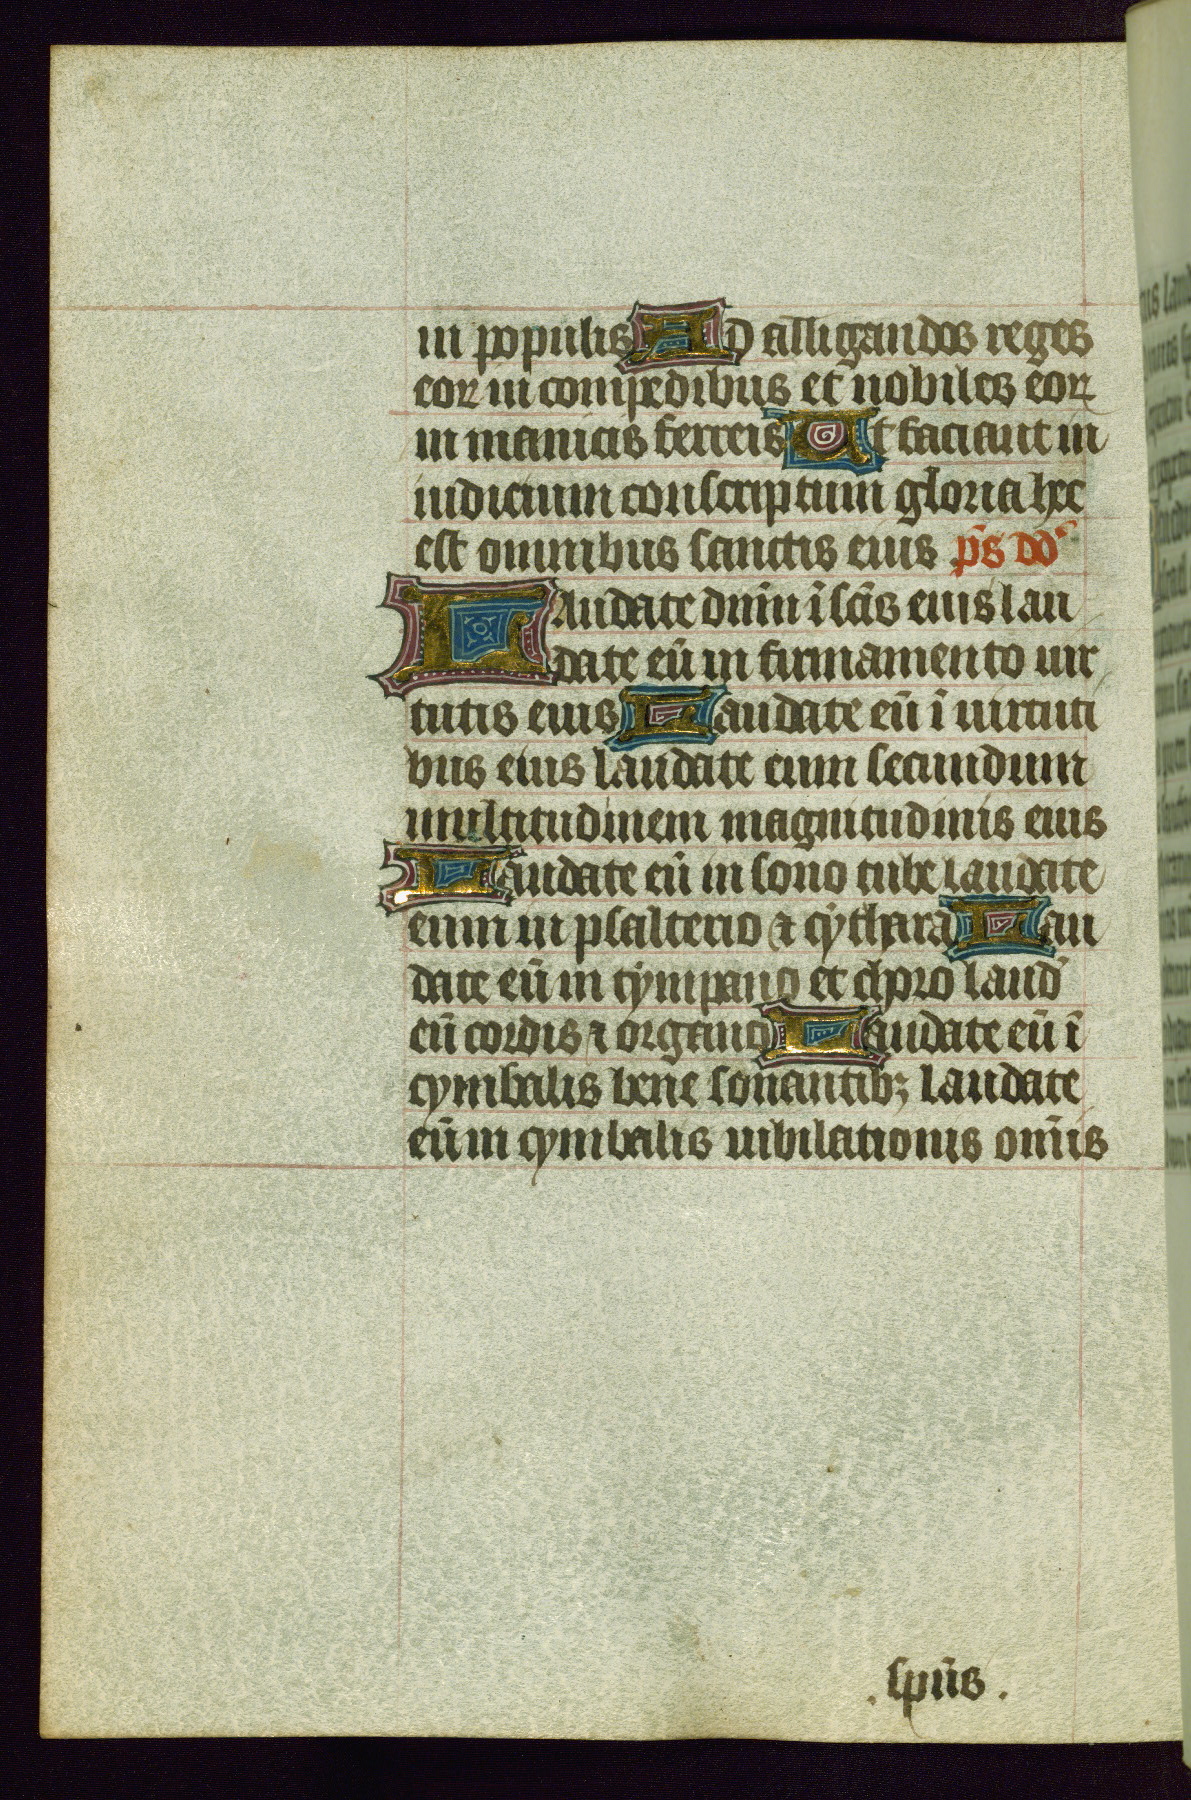 in populis Ad alligandos reges
eoꝝ in compedibus et nobiles eoꝝ
in manicis ferreis Ut faciant in
iudicium conscriptum gloria hec
est omnibus sanctis eius p̄s dd
Laudate dn̄m ī sc̄is eius lau
date eū in firmamento uir
tutis eius Laudate eū ī uirtuti
bus eius laudate eum secundum
multitudinem magnitudinis eius
Laudate eū in sono tube laudate
eum in psalterio ⁊ cythara Lau
date eū in tympano et choro laud
eū cordis ⁊ organo Laudate eū ī
cymbalis bene sonantibꝫ laudate
eū in cymbalis iubilationis om̄is
. sp̄us .